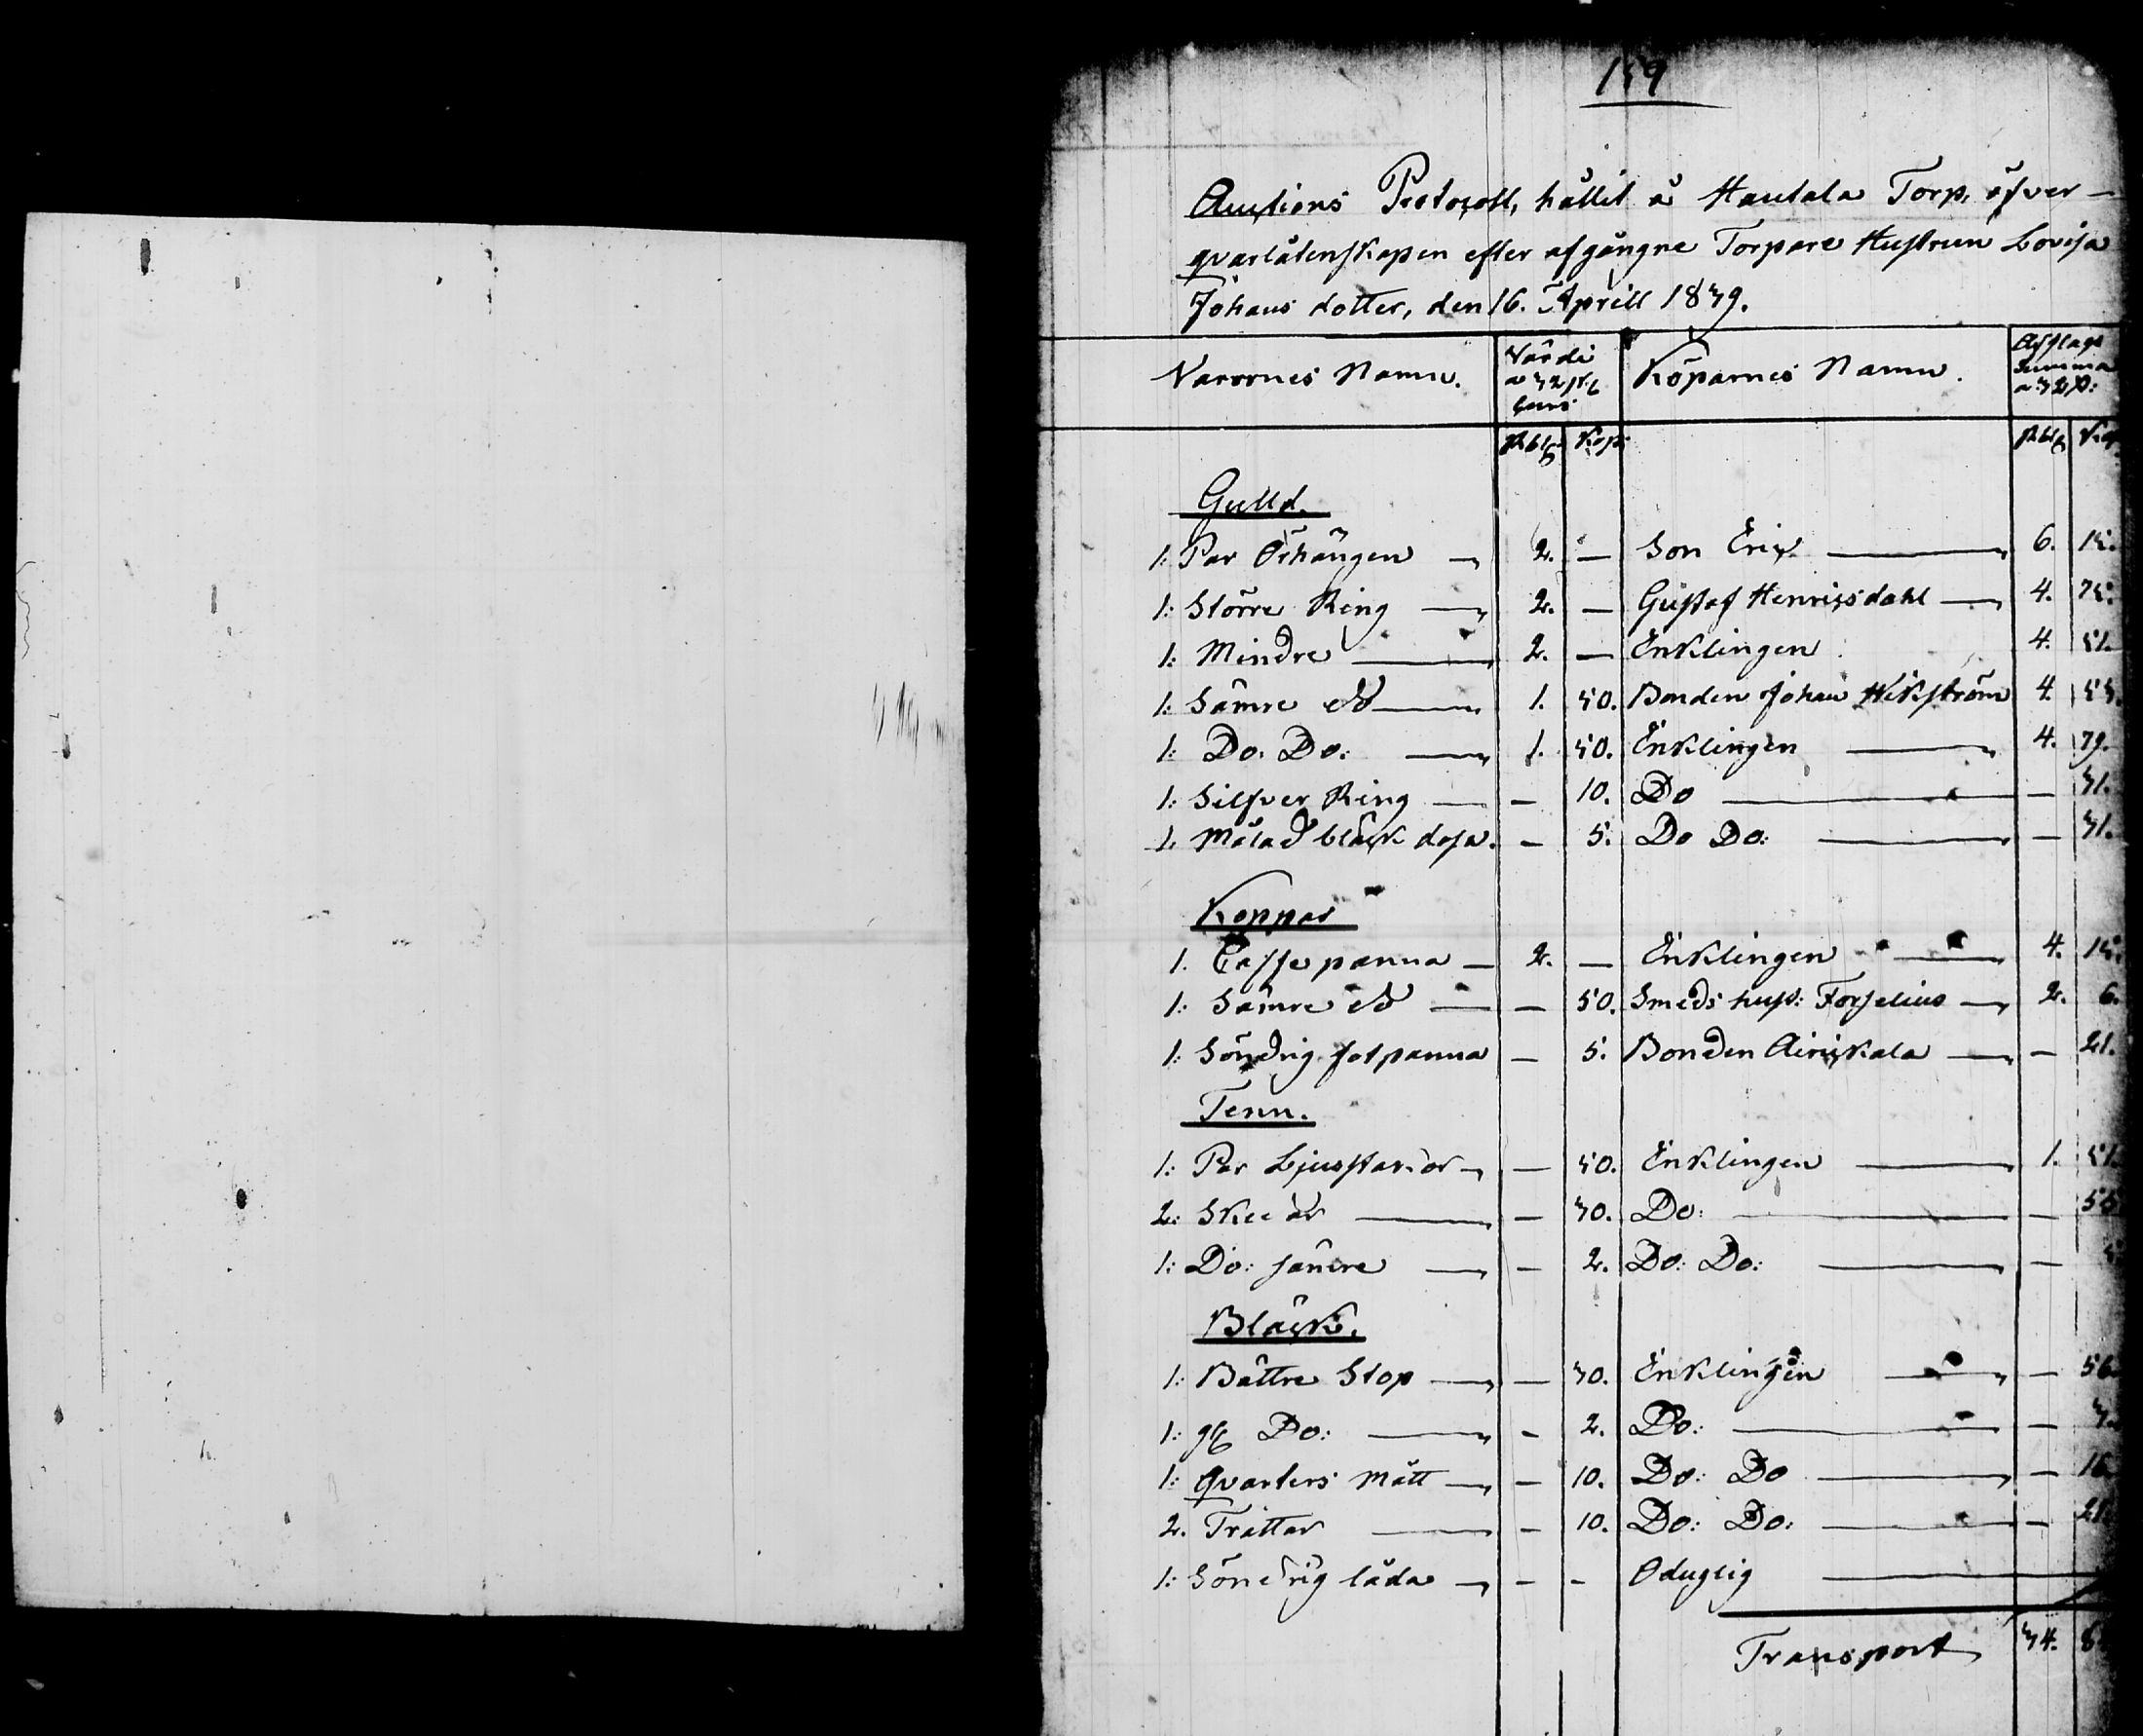 159
Auctions Protocoll, hållit å Hautala Torp, öfver
qvarlåtenskapen efter afgångne Torpare Hustrun Lovisa
Johans dotter, den 16. Aprill 1839.
Varornes Namn. Värdi Köparnes Namn. Afslags Summa
Rbl Kop: Rbl Kop
Gulld.
1: Par Örhängen 2. — Son Eric 6. 15.
1: Större Ring 2. — Gustaf Henricsdahl 4. 75.
1: Mindre 2. — Enklingen 4. 51.
1: Sämre do 1. 50. Bonden Johan Wikström 4. 55.
1: Do. Do: 1. 50. Enklingen 4. 79.
1: Silfver Ring — 10. Do — 31.
1. Målad bläck dosa. — 5. Do Do: — 31.
Koppar
1. Caffe panna 2. — Enklingen 4. 15.
1: Sämre do — 50. Smeds hust: Forselius 2. 6.
1: Söndrig fotpanna — 5. Bonden Airickala — 21.
Tenn.
1: Par Ljusstakar — 50. Enklingen 1. 51.
2: Skedar — 30. Do: — 55
1: Do: sämre — 2. Do: Do: —
Bläck.
1: Bättre Stop — 30. Enklingen — 56
1: gl Do: — 2. Do: — 3.
1: qvarters Mått — 10. Do: Do — 16
2. Trattar — 10. Do: Do: — 21
1: Söndrig låda — - Oduglig
Transport 34.